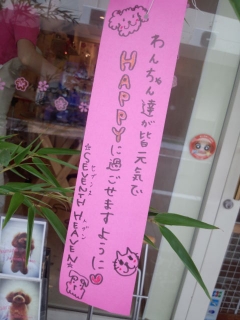 わんちゃん達が皆元気で
HAPPYに過ごせますように
*SEVENTH HEAVEN*